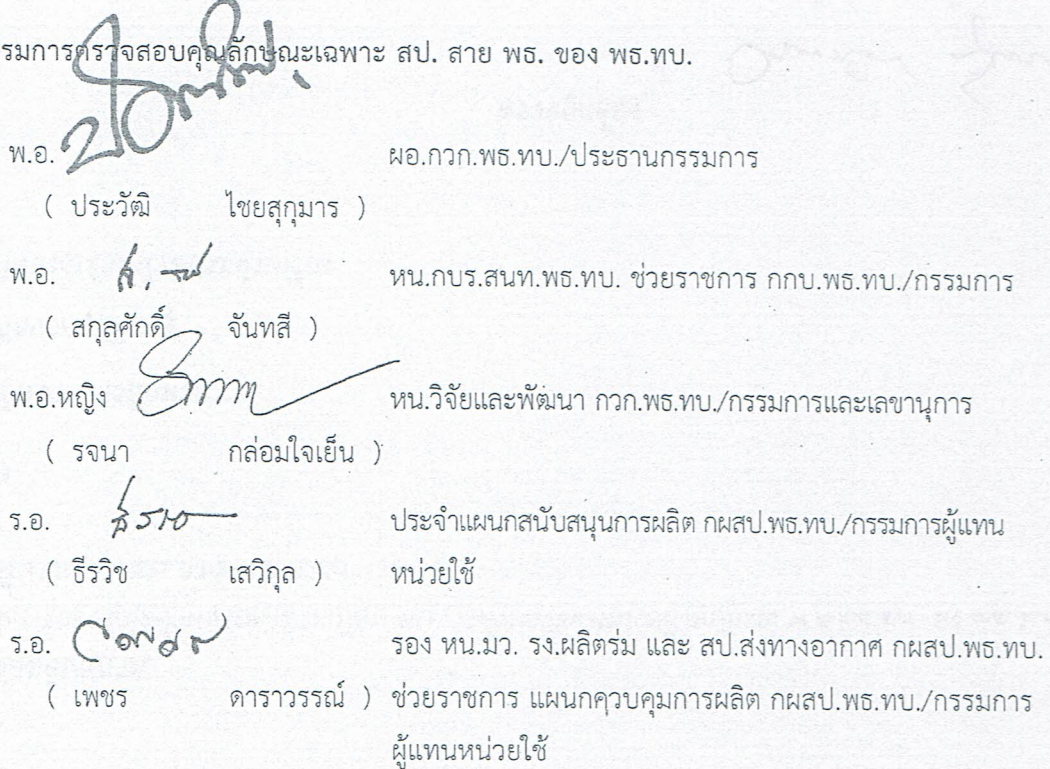 รมการตรวจสอบคุณลักษณะเฉพาะ สป. สาย พธ. ของ พธ.ทบ.
พ.อ. ผอ.กวก.พธ.ทบ./ประธานกรรมการ
( ประวัฒิ ไชยสุกุมาร )
พ.อ. หน.กบร.สนท.พธ.ทบ. ช่วยราชการ กกบ.พธ.ทบ./กรรมการ
( สกุลศักดิ์ จันทสี )
พ.อ.หญิง หน.วิจัยและพัฒนา กวก.พธ.ทบ./กรรมการและเลขานุการ
( รจนา กล่อมใจเย็น )
ร.อ. ประจำแผนกสนับสนุนการผลิต กผสป.พธ.ทบ./กรรมการผู้แทน
( ธีรวิช เสวิกุล ) หน่วยใช้
ร.อ. รอง หน.มว. รง.ผลิตร่ม และ สป.ส่งทางอากาศ กผสป.พธ.ทบ.
( เพชร ดาราวรรณ์ ) ช่วยราชการ แผนกควบคุมการผลิต กผสป.พธ.ทบ./กรรมการ
ผู้แทนหน่วยใช้